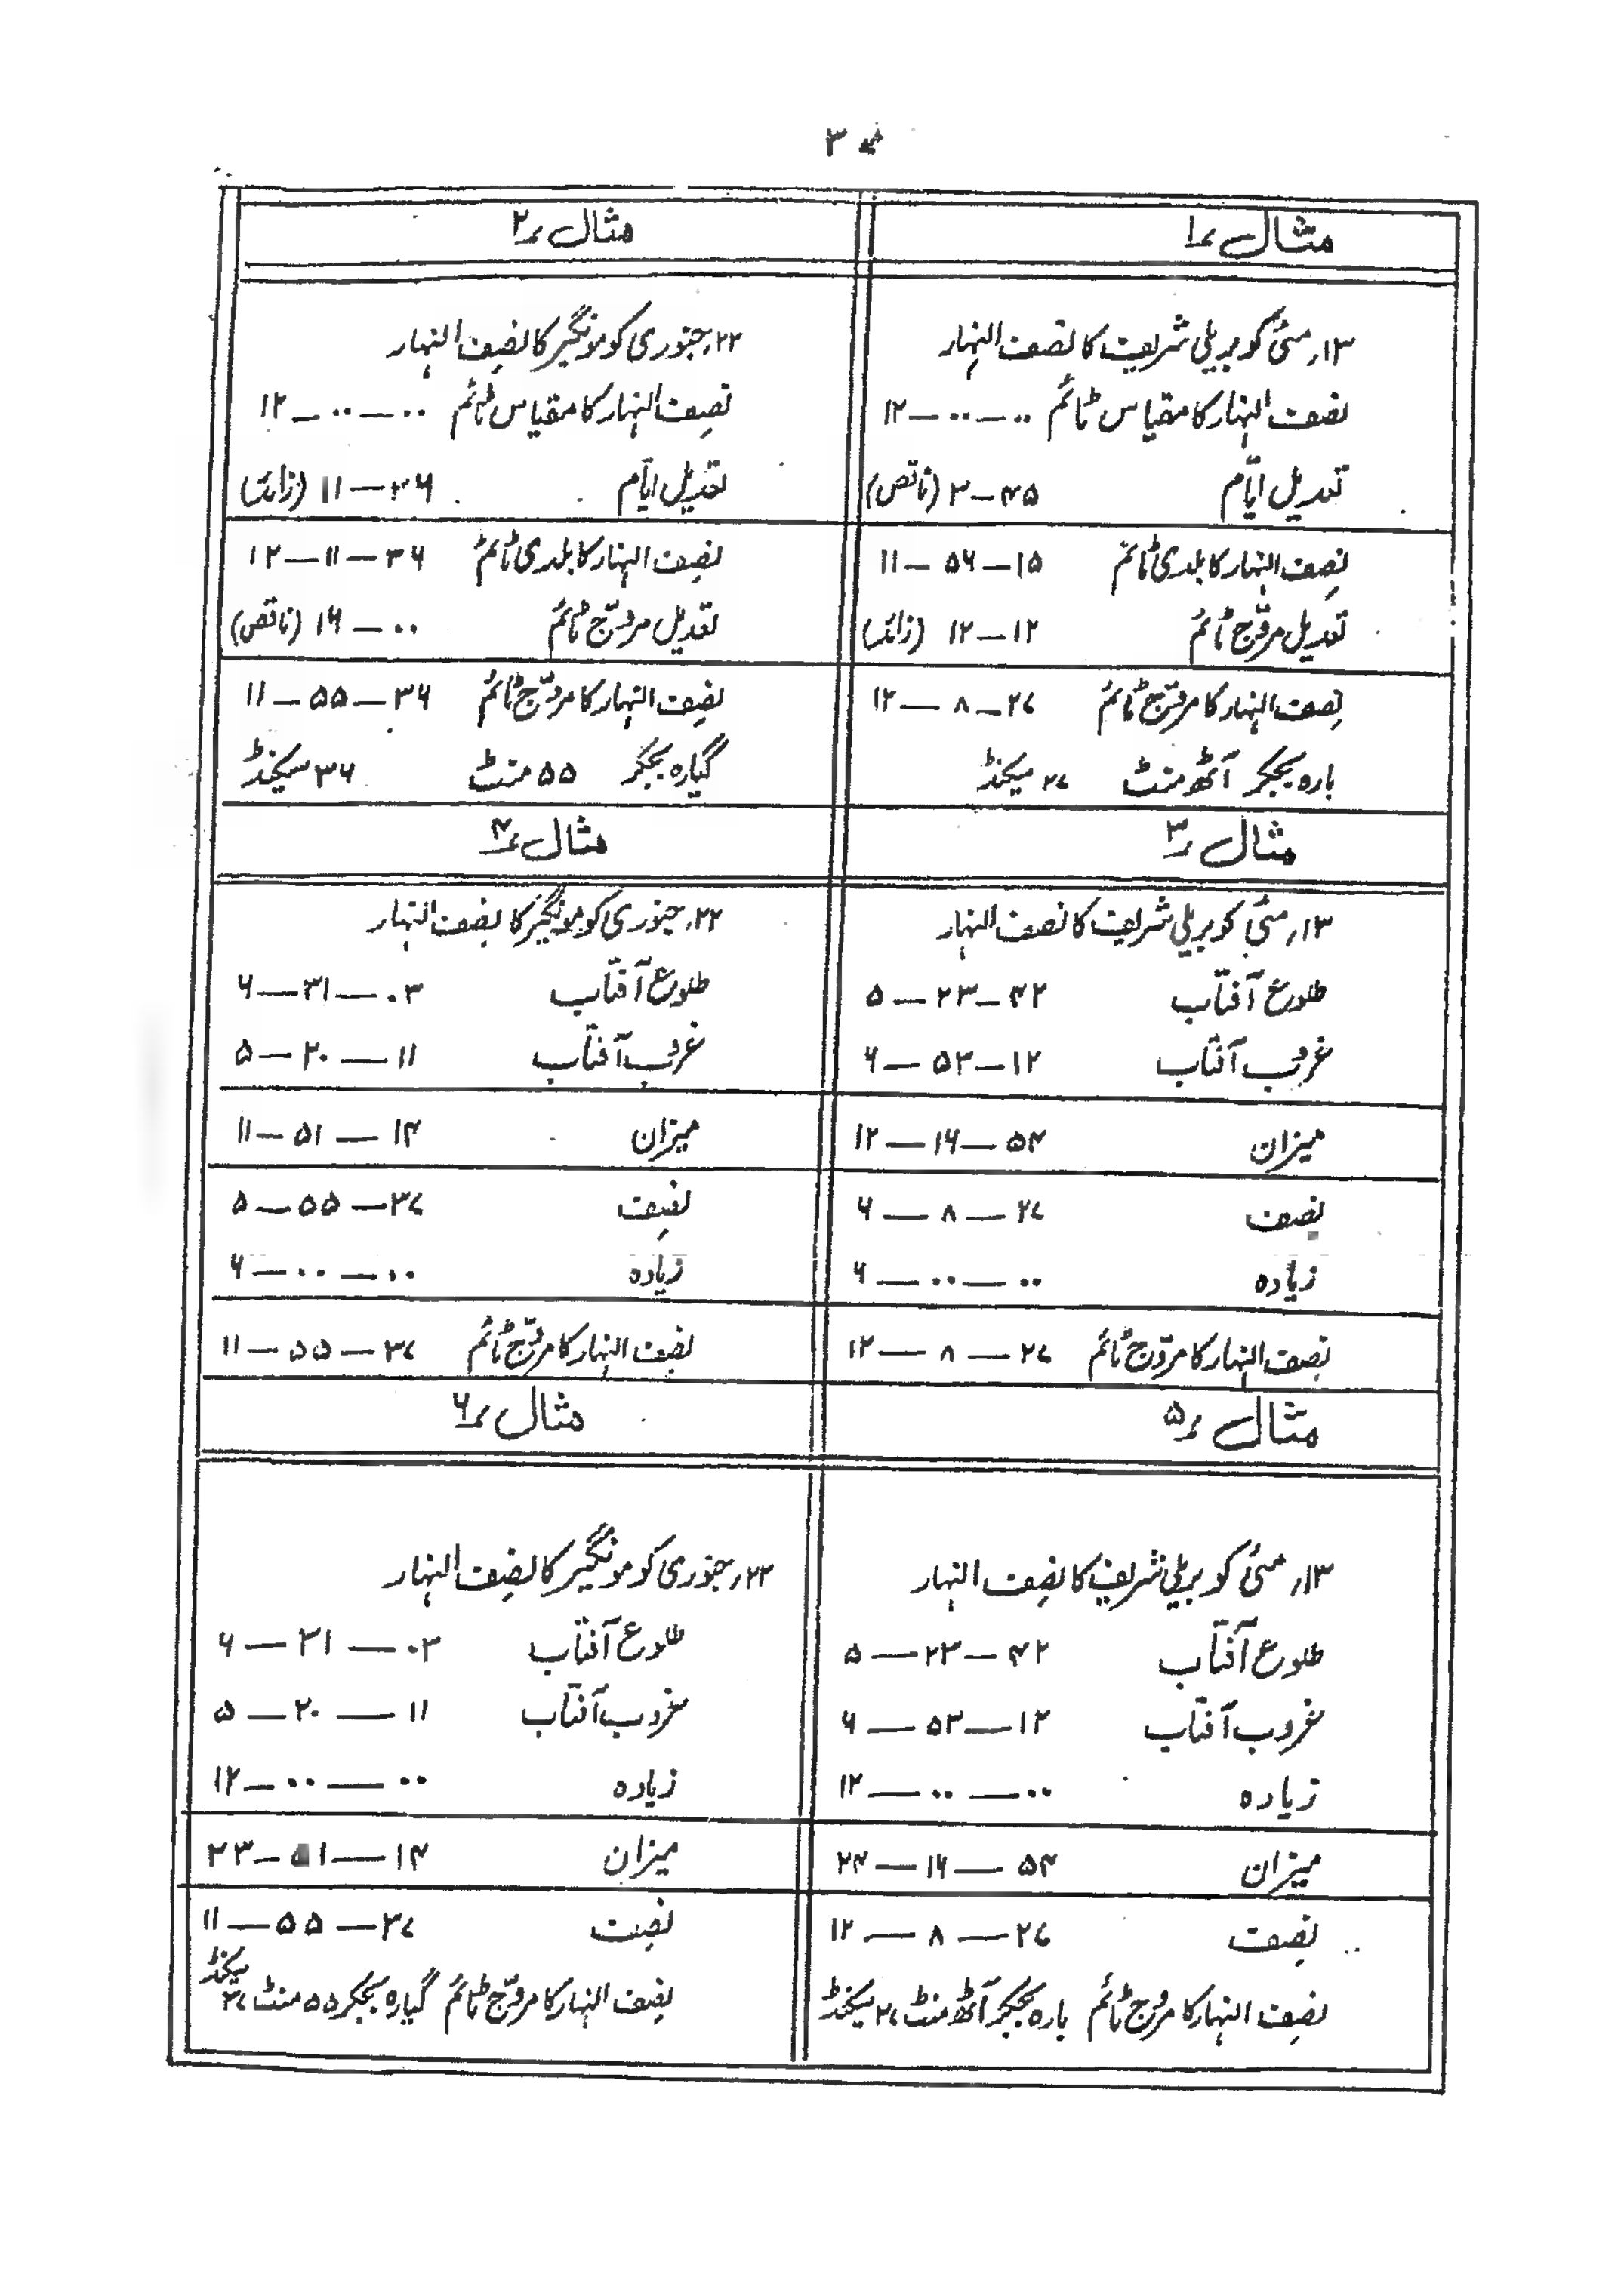 ۳۷
مثال ۱
۱۳؍ مئی کو بریلی شریف کا نصف النہار
نصف النہار کا مقیاس ٹائم ۱۲—۰۰—۰۰
تعدیل ایّام ۳—۴۵ (ناقص)
نصف النہار کا بلدی ٹائم ۱۱—۵۶—۱۵
تعدیل مروّج ٹائم ۱۲—۱۲ (زائد)
نصف النہار کا مروّج ٹائم ۱۲—۸—۲۷
بارہ بجکر آٹھ منٹ ۲۷ سیکنڈ
مثال ۲
۲۲؍ جنوری کو مونگیر کا نصف النہار
نصف النہار کا مقیاس ٹائم ۱۲—۰۰—۰۰
تعدیل ایّام ۱۱—۳۶ (زائد)
نصف النہار کا بلدی ٹائم ۱۲—۱۱—۳۶
تعدیل مروّج ٹائم ۱۶—۰۰ (ناقص)
نصف النہار کا مروّج ٹائم ۱۱—۵۵—۳۶
گیارہ بجکر ۵۵ منٹ ۳۶ سیکنڈ
مثال ۳
۱۳؍ مئی کو بریلی شریف کا نصف النہار
طلوع آفتاب ۵—۲۳—۴۲
غروب آفتاب ۶—۵۳—۱۲
میزان ۱۲—۱۶—۵۴
نصف ۶—۸—۲۷
زیادہ ۶—۰۰—۰۰
نصف النہار کا مروّج ٹائم ۱۲—۸—۲۷
مثال ۴
۲۲؍ جنوری کو مونگیر کا نصف النہار
طلوع آفتاب ۶—۳۱—۰۳
غروب آفتاب ۵—۲۰—۱۱
میزان ۱۱—۵۱—۱۴
نصف ۵—۵۵—۳۷
زیادہ ۶—۰۰—۰۰
نصف النہار کا مروّج ٹائم ۱۱—۵۵—۳۷
مثال ۵
۱۳؍ مئی کو بریلی شریف کا نصف النہار
طلوع آفتاب ۵—۲۳—۴۲
غروب آفتاب ۶—۵۳—۱۲
زیادہ ۱۲—۰۰—۰۰
میزان ۲۴—۱۶—۵۴
نصف ۱۲—۸—۲۷
نصف النہار کا مروج ٹائم بارہ بجکر آٹھ منٹ ۲۷ سیکنڈ
مثال ۶
۲۲؍ جنوری کو مونگیر کا نصف النہار
طلوع آفتاب ۶—۳۱—۰۳
غروب آفتاب ۵—۲۰—۱۱
زیادہ ۱۲—۰۰—۰۰
میزان ۲۳—۵۱—۱۴
نصف ۱۱—۵۵—۳۷
نصف النہار کا مروّج ٹائم گیارہ بجکر ۵۵ منٹ ۳۷ سیکنڈ